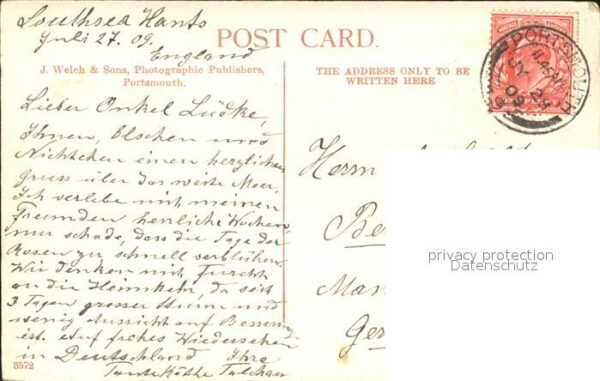 Southsea Hants
Juli 27. 09.
England
POST CARD.
J. Welch & Sons, Photographic Publishers,
Portsmouth.
THE ADDRESS ONLY TO BE
WRITTEN HERE
Lieber Onkel Lübke,
Ihnen, Elschen und
Nichtchen einen herzlichen
Gruss über das weite Meer.
Ich verlebe mit meinen
Freunden herrliche Wochen,
nur schade, dass die Tage der
Rosen zu schnell verblühen.
Wir denken mit Furcht
an die Heimkehr, da seit
3 Tagen grosser Sturm und
wenig Aussicht auf Besserung
ist. Auf frohes Wiedersehen
in Deutschland Ihre
Tante Käthe
3572
Herrn
Be
Mar
Ger
PORTSMOUTH
privacy protection
Datenschutz